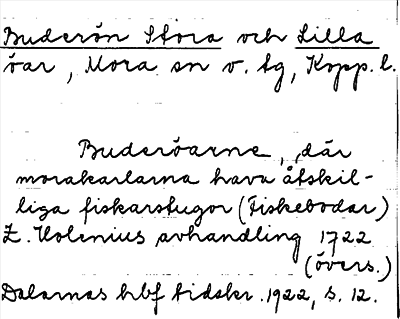 Buderön Stora och Lilla
öar, Mora sn v. tg, Kopp. l.
Buderöarne, där
morakarlarna hava åtskil-
liga fiskarstugor (Fiskebodar)
E. Holenius avhandling 1722
(övers.)
Dalarnas hbf tidskr. 1922, s. 12.